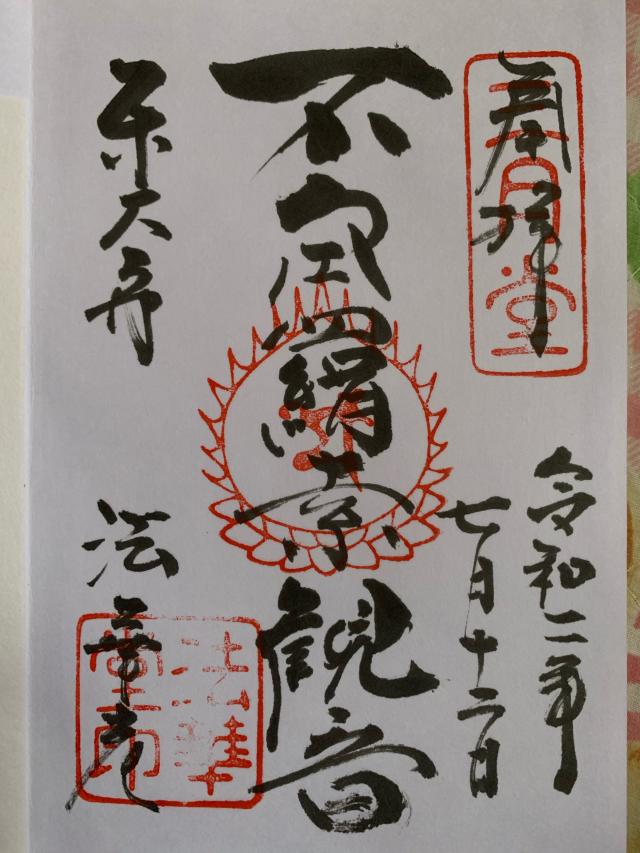 奉拝
三月堂
令和二年
七月十二日
不空羂索観音
東大寺
法華堂
法華堂印